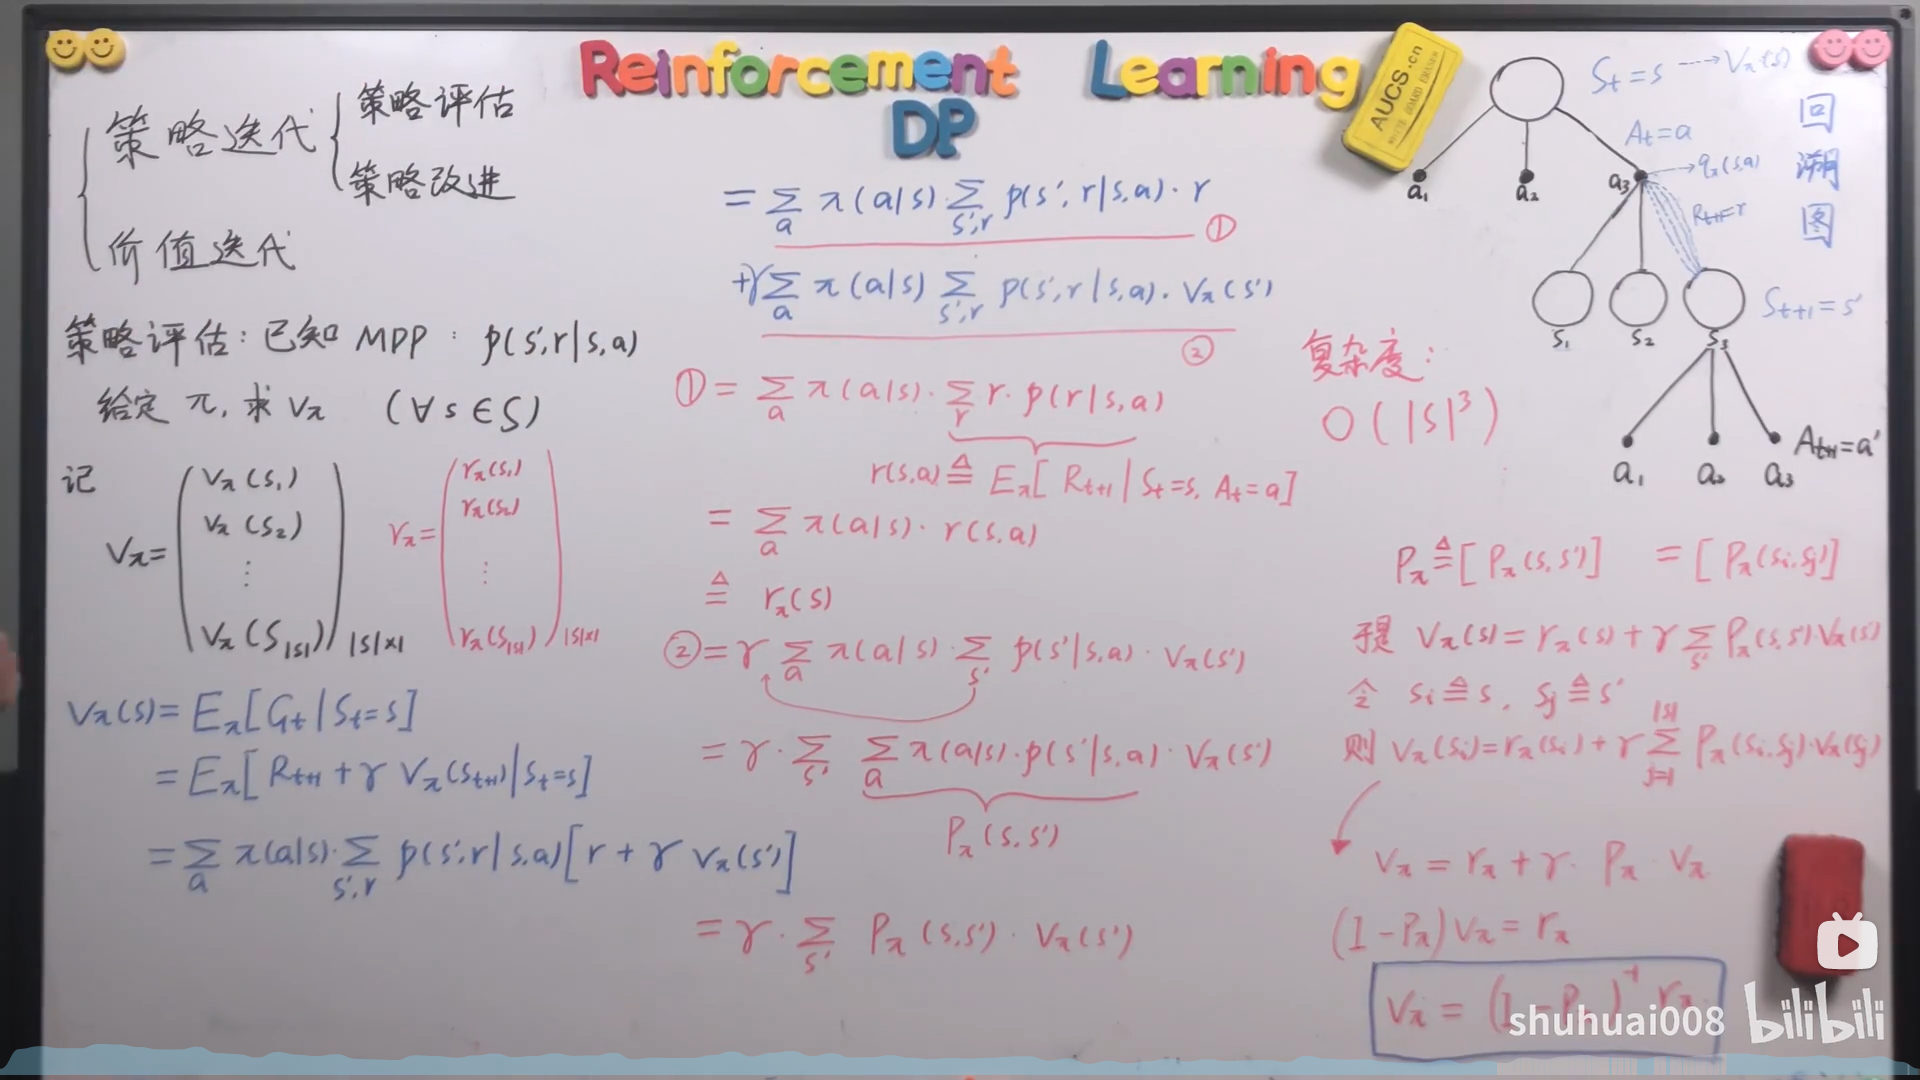 Reinforcement Learning
DP
策略迭代
策略评估
策略改进
价值迭代
策略评估:已知 MDP : p(s',r|s,a)
给定 π, 求 Vπ (∀s∈S)
记
Vπ=
Vπ(S₁)
Vπ(S₂)
⋮
Vπ(S|s|)
|S|×1
rπ=
rπ(S₁)
rπ(S₂)
⋮
rπ(S|s|)
|S|×1
Vπ(s)= Eπ[Gt|St=s]
= Eπ[Rt+1 + γ Vπ(St+1)|St=s]
= Σa π(a|s)·Σs',r p(s',r|s,a)[r + γ Vπ(s')]
= Σa π(a|s)·Σs',r p(s',r|s,a)·r
①
+γΣa π(a|s) Σs',r p(s',r|s,a)·Vπ(s')
②
①= Σa π(a|s)·Σr r·p(r|s,a)
r(s,a)≜ Eπ[Rt+1|St=s, At=a]
= Σa π(a|s)·r(s,a)
≜ rπ(s)
②=γ Σa π(a|s)·Σs' p(s'|s,a)·Vπ(s')
= γ·Σs' Σa π(a|s)·p(s'|s,a)·Vπ(s')
Pπ(s,s')
= γ·Σs' Pπ(s,s')·Vπ(s')
AUCS.cn
WHITE BOARD ERASER
St=s
Vπ(s)
At=a
a₁ a₂ a₃
qπ(s,a)
Rt+1=r
回溯图
S₁ S₂ S₃
St+1=s'
At+1=a'
a₁ a₂ a₃
复杂度:
O(|S|³)
Pπ≜[Pπ(s,s')] =[Pπ(si,sj)]
于是 Vπ(s)=rπ(s)+γΣs' Pπ(s,s')·Vπ(s')
令 si≜s, sj≜s'
则 Vπ(si)=rπ(si)+γ Σ|S|j=1 Pπ(si,sj)·Vπ(sj)
Vπ = rπ + γ· Pπ·Vπ
(I-Pπ)Vπ = rπ
Vπ = (I-P )⁻¹ rπ
shuhuai008
bilibili